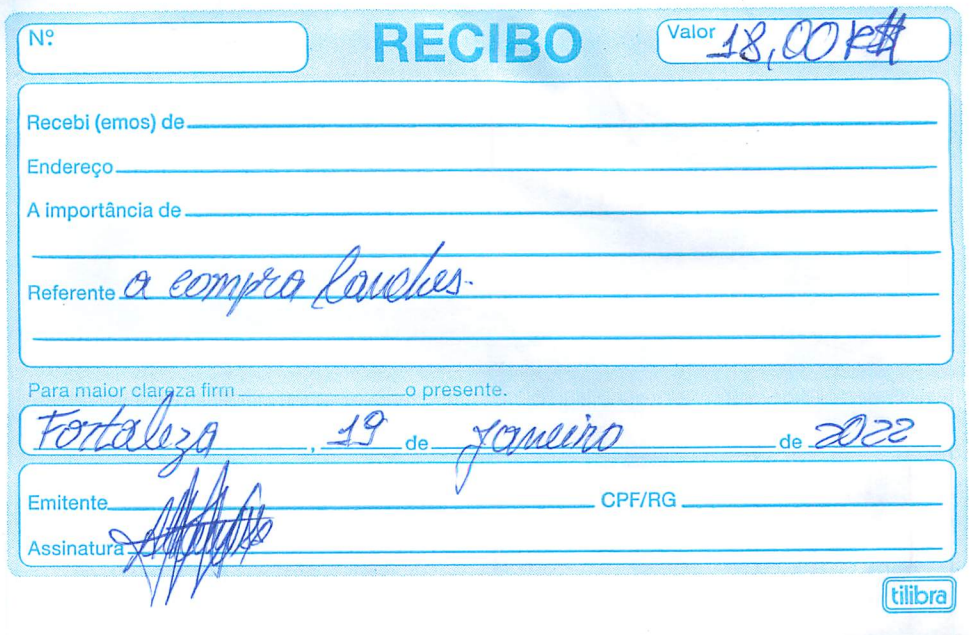 Nº RECIBO Valor 18,00 R$
Recebi (emos) de
Endereço
A importância de
Referente a compra lanches.
Para maior clareza firm o presente.
Fortaleza, 19 de Janeiro de 2022
Emitente CPF/RG
Assinatura
tilibra